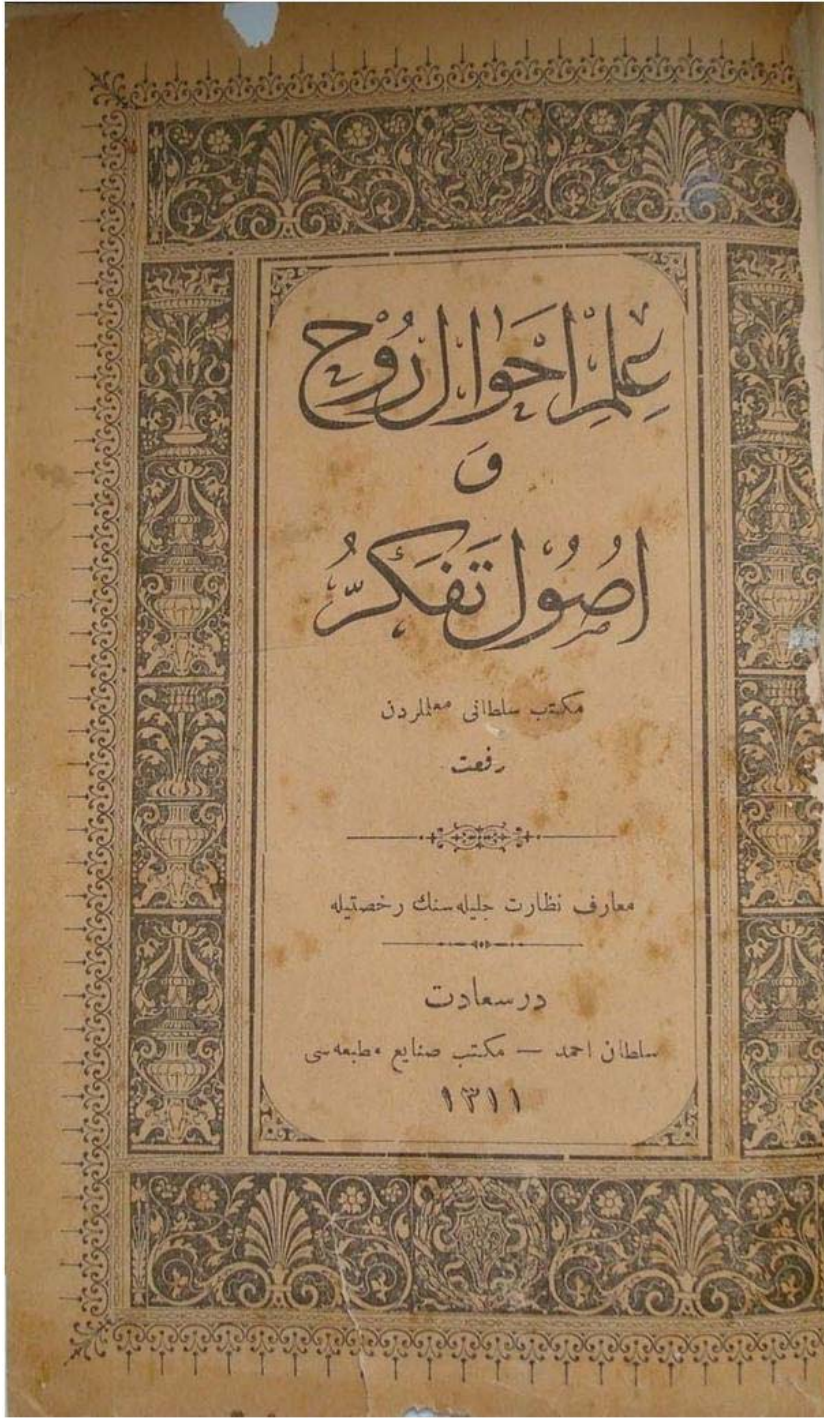 عِلْمِ اَحْوَالِ رُوْح
وَ
اُصُولِ تَفَكُّرْ
مكتب سلطانى معلملردن
رفعت
معارف نظارت جليله سنك رخصتيله
درسعادت
سلطان احمد — مكتب صنايع مطبعه سى
١٣١١